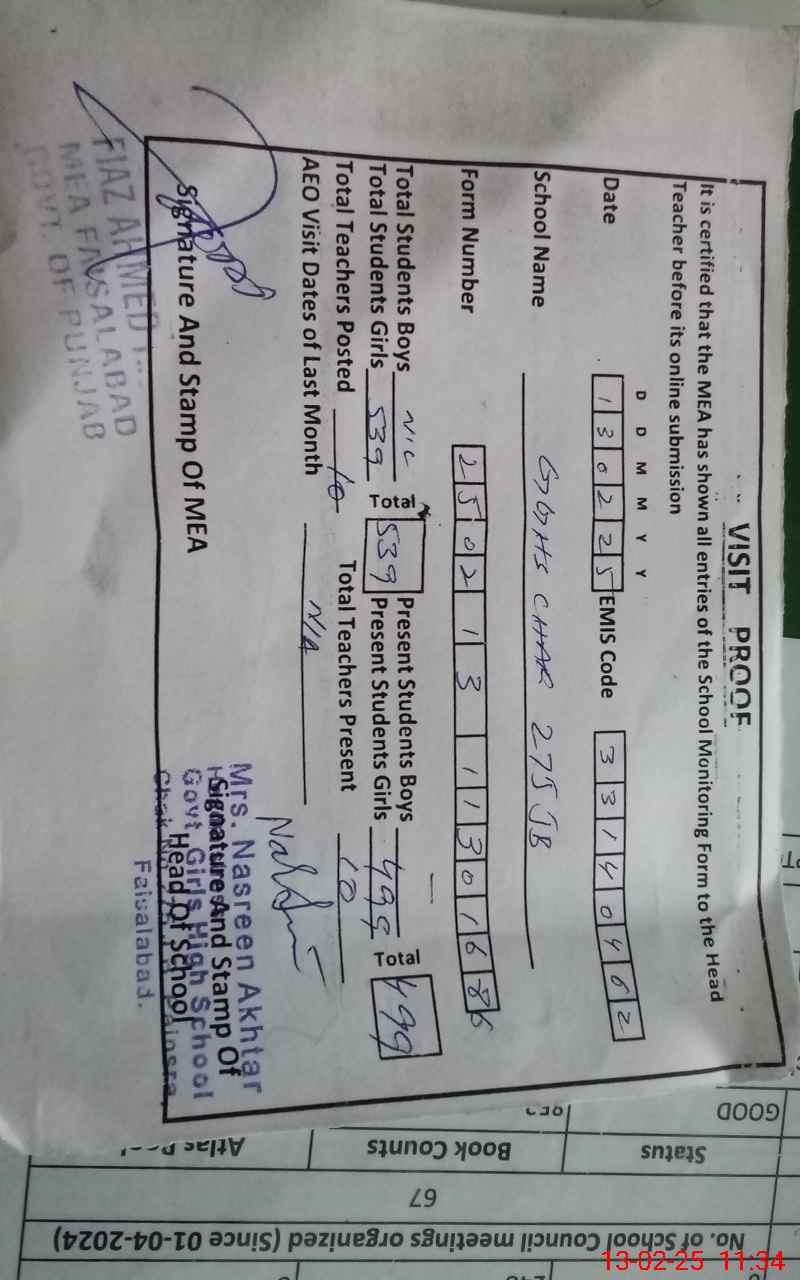 VISIT PROOF
It is certified that the MEA has shown all entries of the School Monitoring Form to the Head
Teacher before its online submission
D D M M Y Y
Date 1 3 0 2 2 5 EMIS Code 3 3 1 4 0 4 6 2
School Name GGHS CHAK 275 JB
Form Number 2 5 0 2 1 3 1 1 3 0 1 6 8
Total Students Boys NIL Present Students Boys —
Total Students Girls 539 Total 539 Present Students Girls 499 Total 499
Total Teachers Posted 10 Total Teachers Present 10
AEO Visit Dates of Last Month N/A
Signature And Stamp Of MEA
FIAZ AHMED
MEA FAISALABAD
GOVT. OF PUNJAB
Mrs. Nasreen Akhtar
Signature And Stamp Of
Govt Girls High School
Head Of School
Faisalabad.
GOOD
Status
Book Counts
67
No. of School Council meetings organized (Since 01-04-2024)
13-02-25 11:34